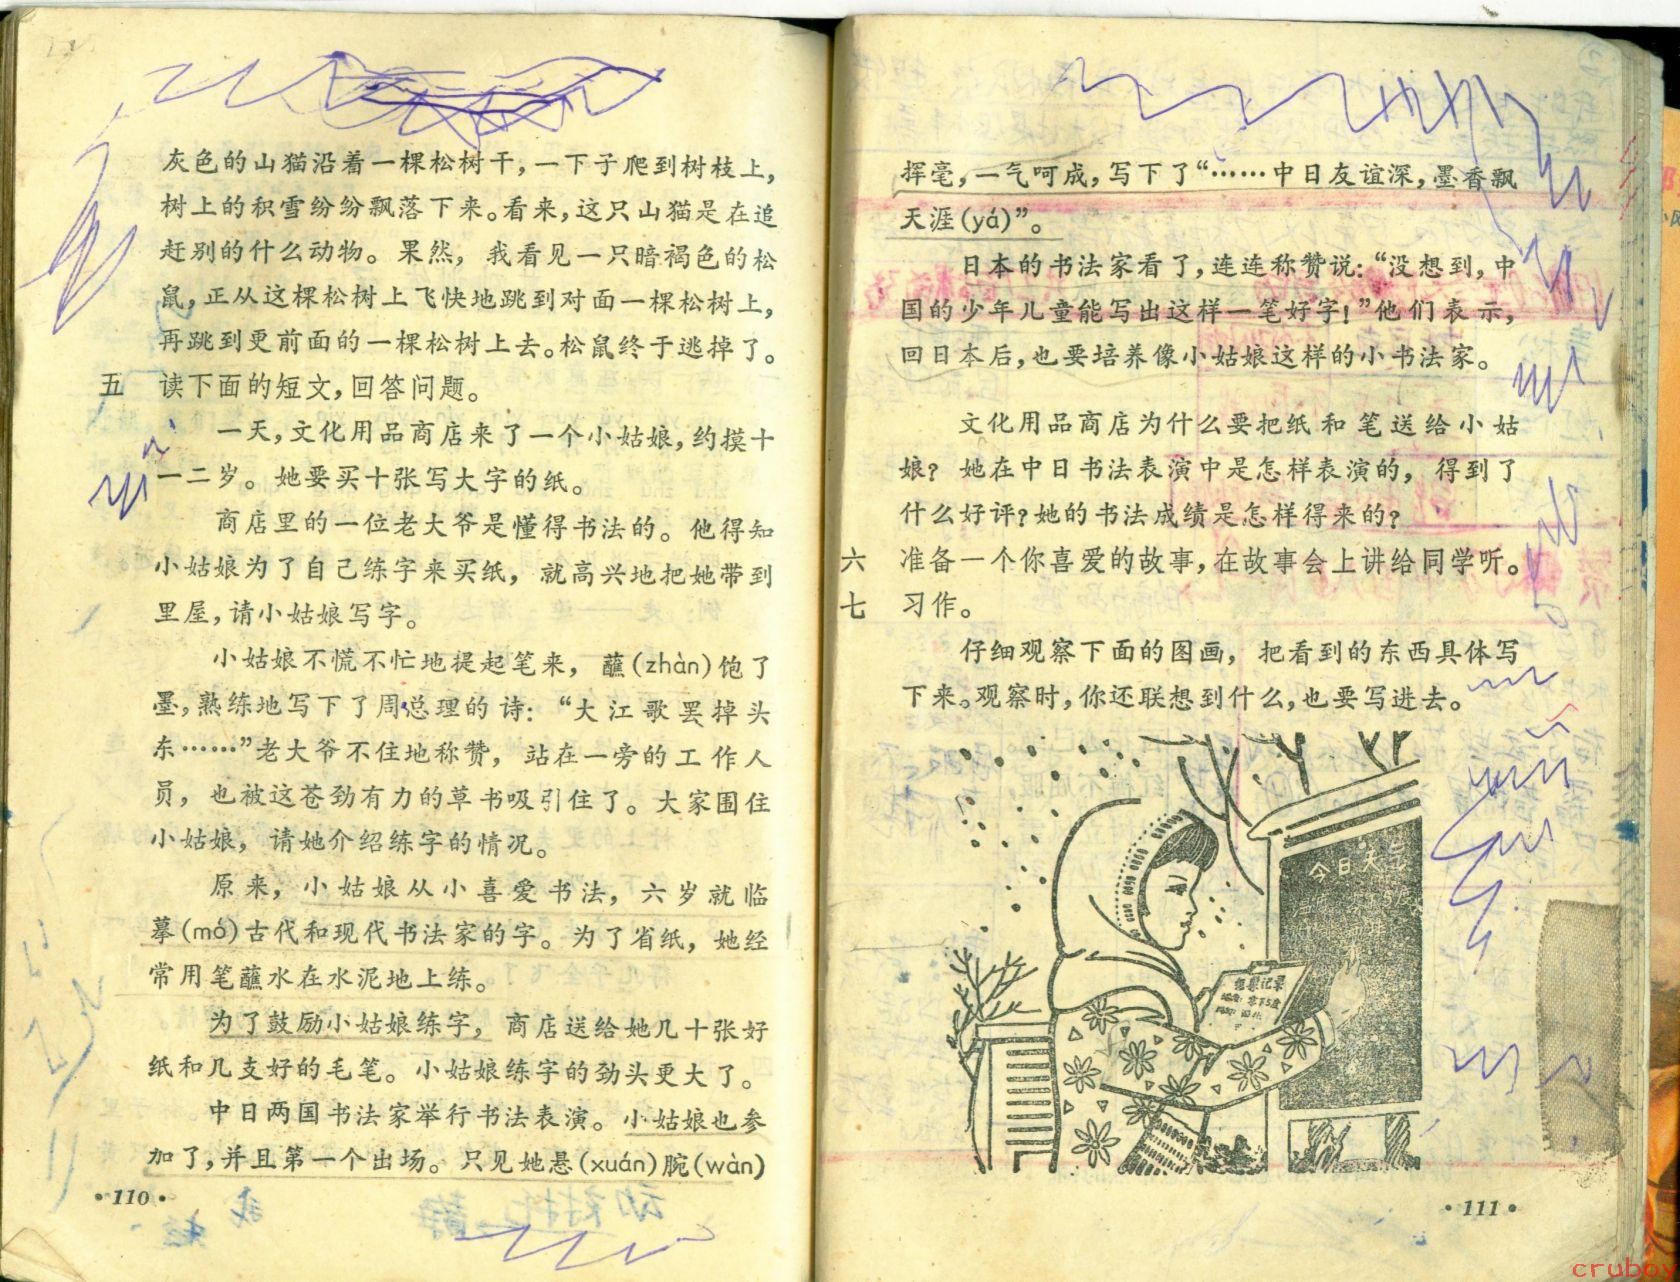 灰色的山猫沿着一棵松树干，一下子爬到树枝上，
树上的积雪纷纷飘落下来。看来，这只山猫是在追
赶别的什么动物。果然，我看见一只暗褐色的松
鼠，正从这棵松树上飞快地跳到对面一棵松树上，
再跳到更前面的一棵松树上去。松鼠终于逃掉了。
五 读下面的短文，回答问题。
一天，文化用品商店来了一个小姑娘，约摸十
一二岁。她要买十张写大字的纸。
商店里的一位老大爷是懂得书法的。他得知
小姑娘为了自己练字来买纸，就高兴地把她带到
里屋，请小姑娘写字。
小姑娘不慌不忙地提起笔来，蘸(zhàn)饱了
墨，熟练地写下了周总理的诗：“大江歌罢掉头
东……”老大爷不住地称赞，站在一旁的工作人
员，也被这苍劲有力的草书吸引住了。大家围住
小姑娘，请她介绍练字的情况。
原来，小姑娘从小喜爱书法，六岁就临
摹(mó)古代和现代书法家的字。为了省纸，她经
常用笔蘸水在水泥地上练。
为了鼓励小姑娘练字，商店送给她几十张好
纸和几支好的毛笔。小姑娘练字的劲头更大了。
中日两国书法家举行书法表演。小姑娘也参
加了，并且第一个出场。只见她悬(xuán)腕(wàn)
·110·
挥毫，一气呵成，写下了“……中日友谊深，墨香飘
天涯(yá)”。
日本的书法家看了，连连称赞说：“没想到，中
国的少年儿童能写出这样一笔好字！”他们表示，
回日本后，也要培养像小姑娘这样的小书法家。
文化用品商店为什么要把纸和笔送给小姑
娘？她在中日书法表演中是怎样表演的，得到了
什么好评？她的书法成绩是怎样得来的？
六 准备一个你喜爱的故事，在故事会上讲给同学听。
七 习作。
仔细观察下面的图画，把看到的东西具体写
下来。观察时，你还联想到什么，也要写进去。
今日天气
·111·
cruboy